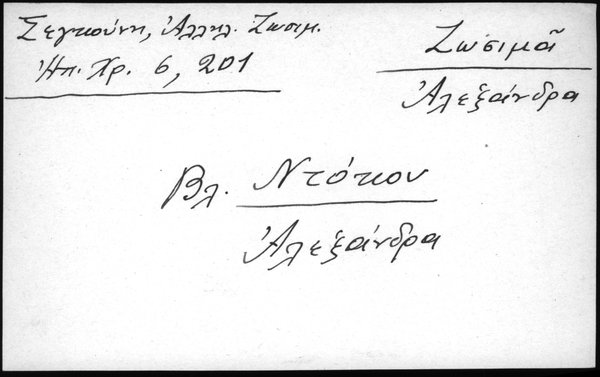 Σεγκούνη, Ἀλληλ. Ζωσιμ.
Ἠπ. Χρ. 6, 201
Ζωσιμᾶ
Ἀλεξάνδρα
Βλ. Ντόκου
Ἀλεξάνδρα